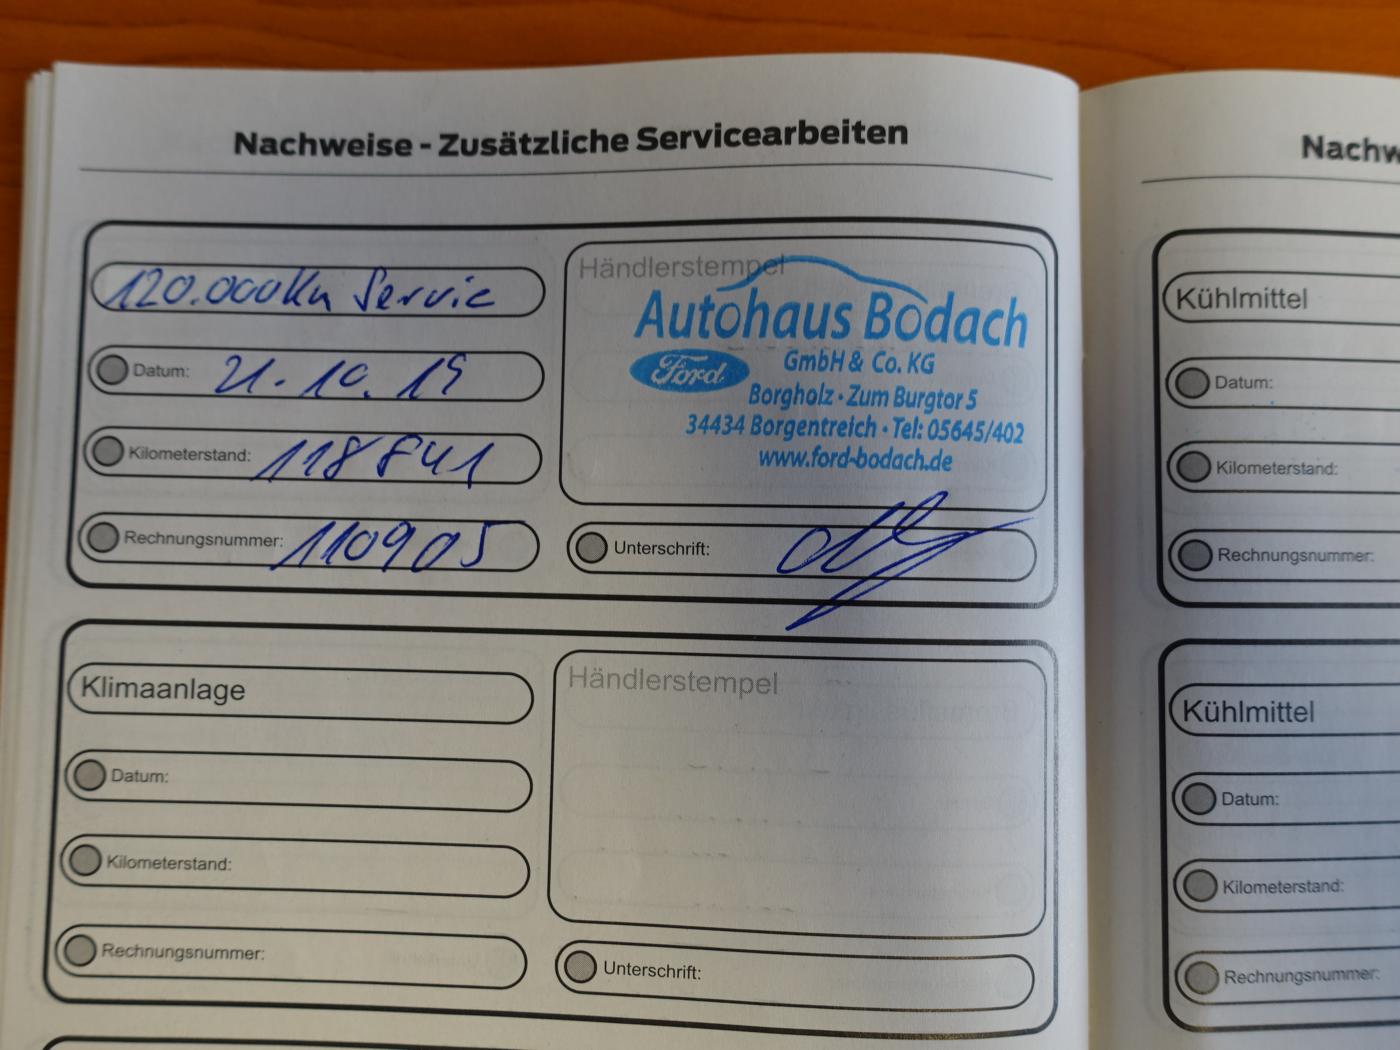 Nachweise - Zusätzliche Servicearbeiten
120.000Km Servic
Datum: 21.10.19
Kilometerstand: 118841
Rechnungsnummer: 110905
Händlerstempel
Autohaus Bodach
Ford
GmbH & Co. KG
Borgholz · Zum Burgtor 5
34434 Borgentreich · Tel: 05645/402
www.ford-bodach.de
Unterschrift:
Klimaanlage
Datum:
Kilometerstand:
Rechnungsnummer:
Händlerstempel
Unterschrift:
Nachw
Kühlmittel
Datum:
Kilometerstand:
Rechnungsnummer:
Kühlmittel
Datum:
Kilometerstand:
Rechnungsnummer: